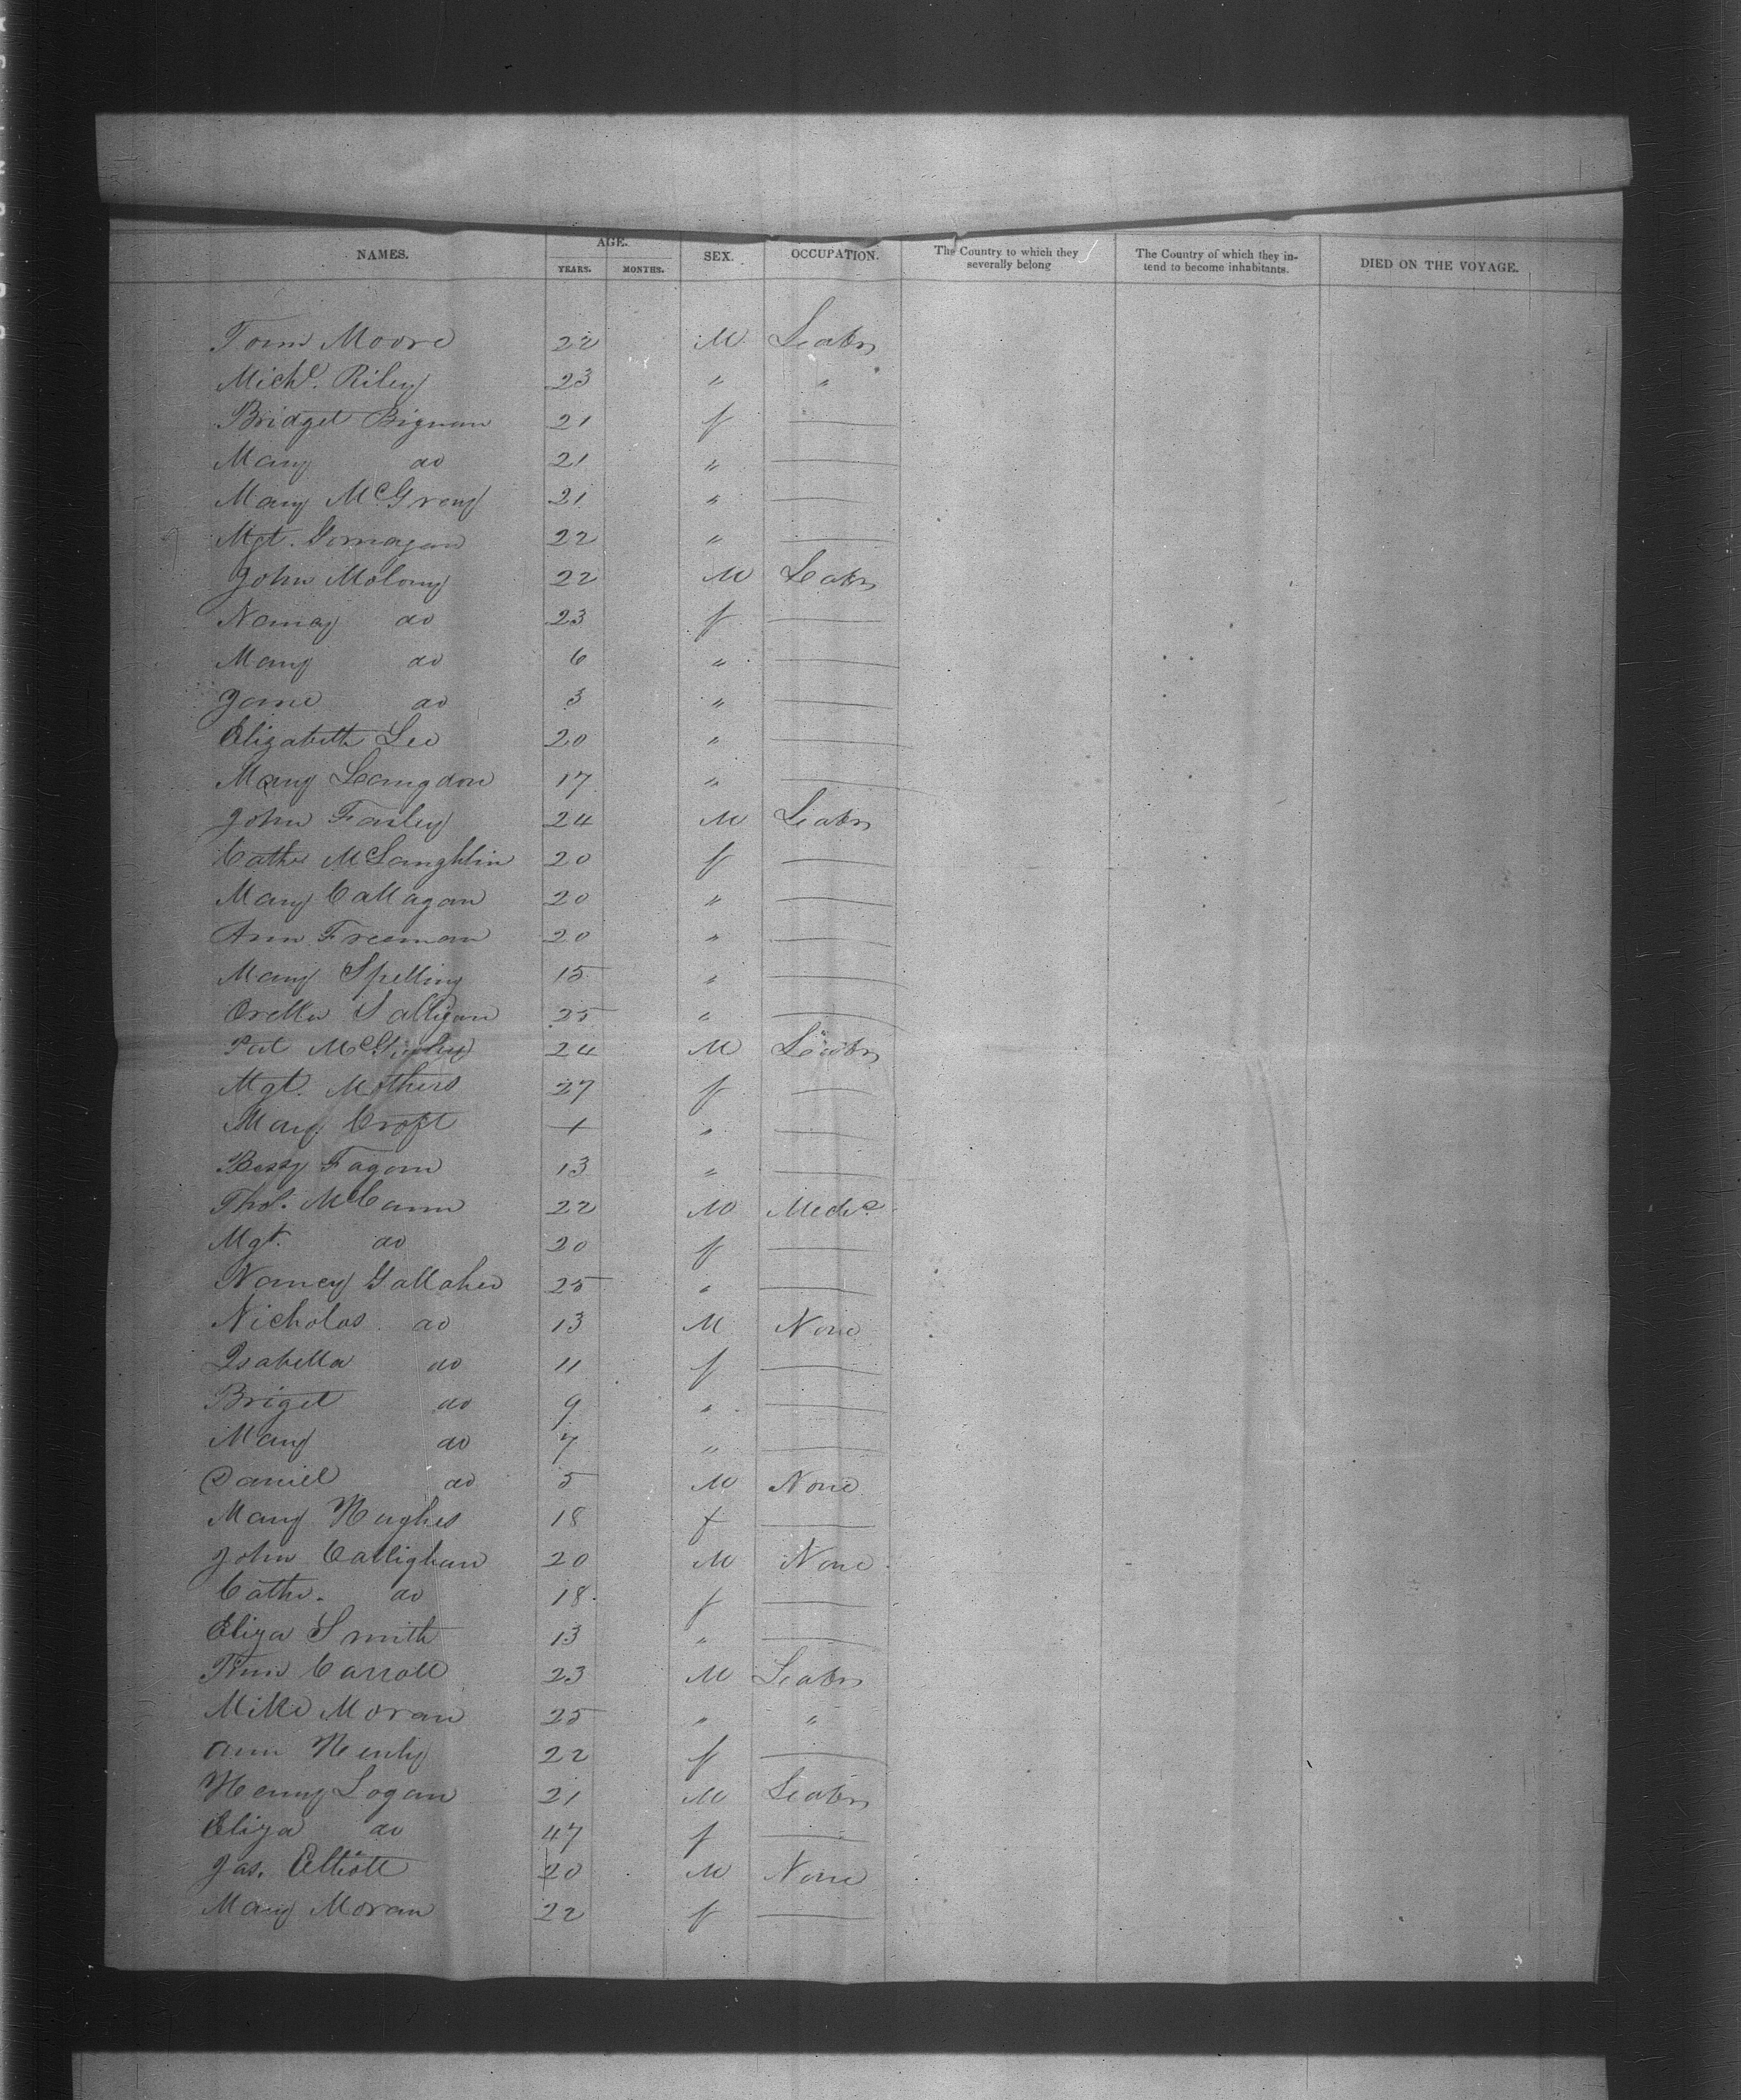 NAMES. AGE. SEX. OCCUPATION. The Country to which they severally belong The Country of which they intend to become inhabitants. DIED ON THE VOYAGE.
YEARS. MONTHS.
Tom Moore 22 M Labr
Michl. Riley 23 " "
Bridget Bignan 21 f —
Mary do 21 " —
Mary McGreuy 21 " —
Mgt. 22 " —
John Molony 22 M Labr
Nancy do 23 f —
Mary do 6 " —
Jane do 3 " —
Elizabeth Lee 20 " —
Mary Langdon 17 " —
John Farley 24 M Labr
Cathe McLaughlin 20 f —
Mary Callagan 20 " —
Ann Freeman 20 " —
Mary Spelling 15 " —
Salligan 25 " —
Pat 24 M Labr
Mgt. Mothers 27 f —
Mary Croft 1 " —
Bessy Fagan 13 " —
Thos. McCann 22 M Mechc
Mgt. do 20 f —
Nancy Gallaher 25 " —
Nicholas do 13 M None
Isabella do 11 f —
Briget do 9 " —
Mary do 7 " —
Daniel do 5 M None
Mary Hughes 18 f —
John Callighan 20 M None
Cathe. do 18 f —
Eliza Smith 13 " —
Tim Carroll 23 M Labr
Mike Moran 25 " "
Ann Henly 22 f —
Henry Logan 21 M Labr
Eliza do 47 f —
Jas. Elliott 20 M None
Mary Moran 22 f —